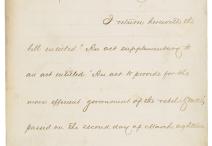 I return herewith the
bill entitled "An act supplementary to
an act entitled 'An act to provide for the
more efficient government of the rebel States,'
passed on the second day of March, eighteen